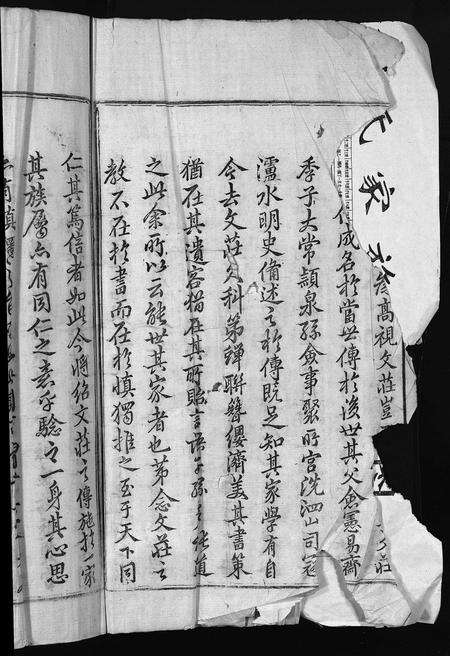 參高視文莊豈
成名於當世傳於後世其父僉憲易齋
季子太常潁泉孫僉事聚所宫洗泗山司寇
瀘水明史備述之於傳旣足知其家學有自
今去文莊父科第蟬聯簪纓濟美其書策
猶在其遺容猶在其所貽言語子孫多能道
之此余所以云能世其家者也第念文莊之
教不在於書而在於慎獨推之至于天下同
仁其篤信者如此今將紹文莊之傳施於一家
其族屬亦有同仁之意乎騐之一身其心思